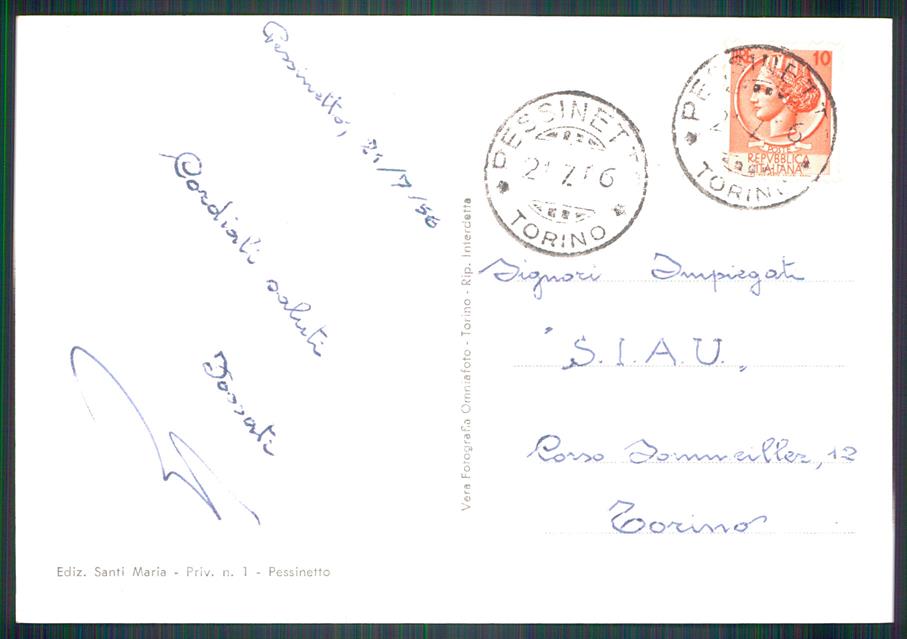 Pessinetto, 21/7/56
Cordiali saluti
Fossati
Ediz. Santi Maria - Priv. n. 1 - Pessinetto
Vera Fotografia Omniafoto - Torino - Rip. Interdetta
PESSINETT
21 7 6
TORINO
PESSINETT
2 7 6
TORIN
LIRE 10
POSTE
REPVBBLICA
ITALIANA
Signori Impiegati
"S.I.A.U."
Corso Sommeiller, 12
Torino